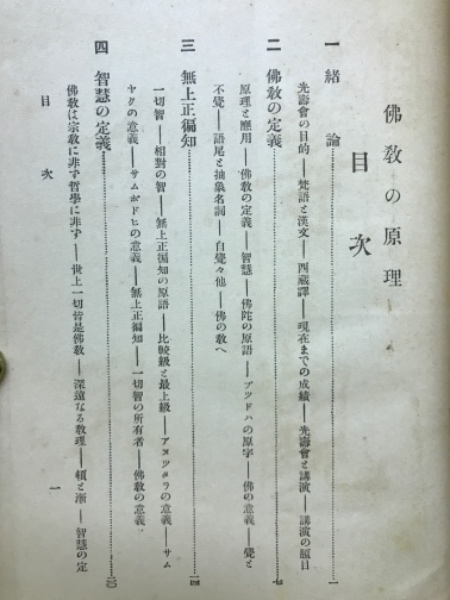 佛教の原理
目次
一 緒論……一
光壽會の目的――梵語と漢文――西藏譯――現在までの成績――光壽會と講演――講演の題目
二 佛教の定義
原理と應用――佛教の定義――智慧――佛陀の原語――ブツドハの原字――佛の意義――覺と
不覺――語尾と抽象名詞――自覺々他――佛の教へ
三 無上正徧知……一四
一切智――相對の智――無上正徧知の原語――比較級と最上級――アヌツタラの意義――サム
ヤクの意義――サムボドヒの意義――無上正徧知――一切智の所有者――佛教の意義
四 智慧の定義
佛教は宗教に非ず哲學に非ず――世上一切皆是佛教――深遠なる教理――頓と漸――智慧の定
目次
一